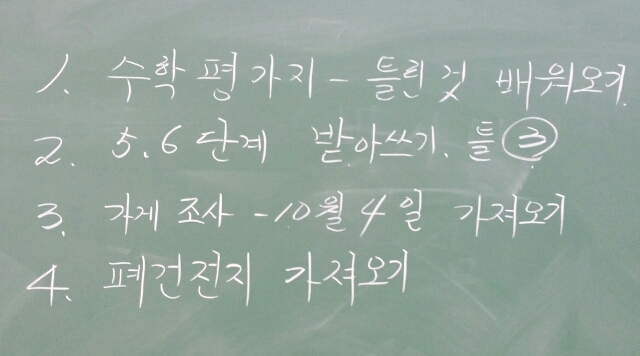 1. 수학 평가지 - 틀린것 배워오기
2. 5.6 단계 받아쓰기. 틀 ③
3. 가게 조사 - 10월 4일 가져오기
4. 폐건전지 가져오기